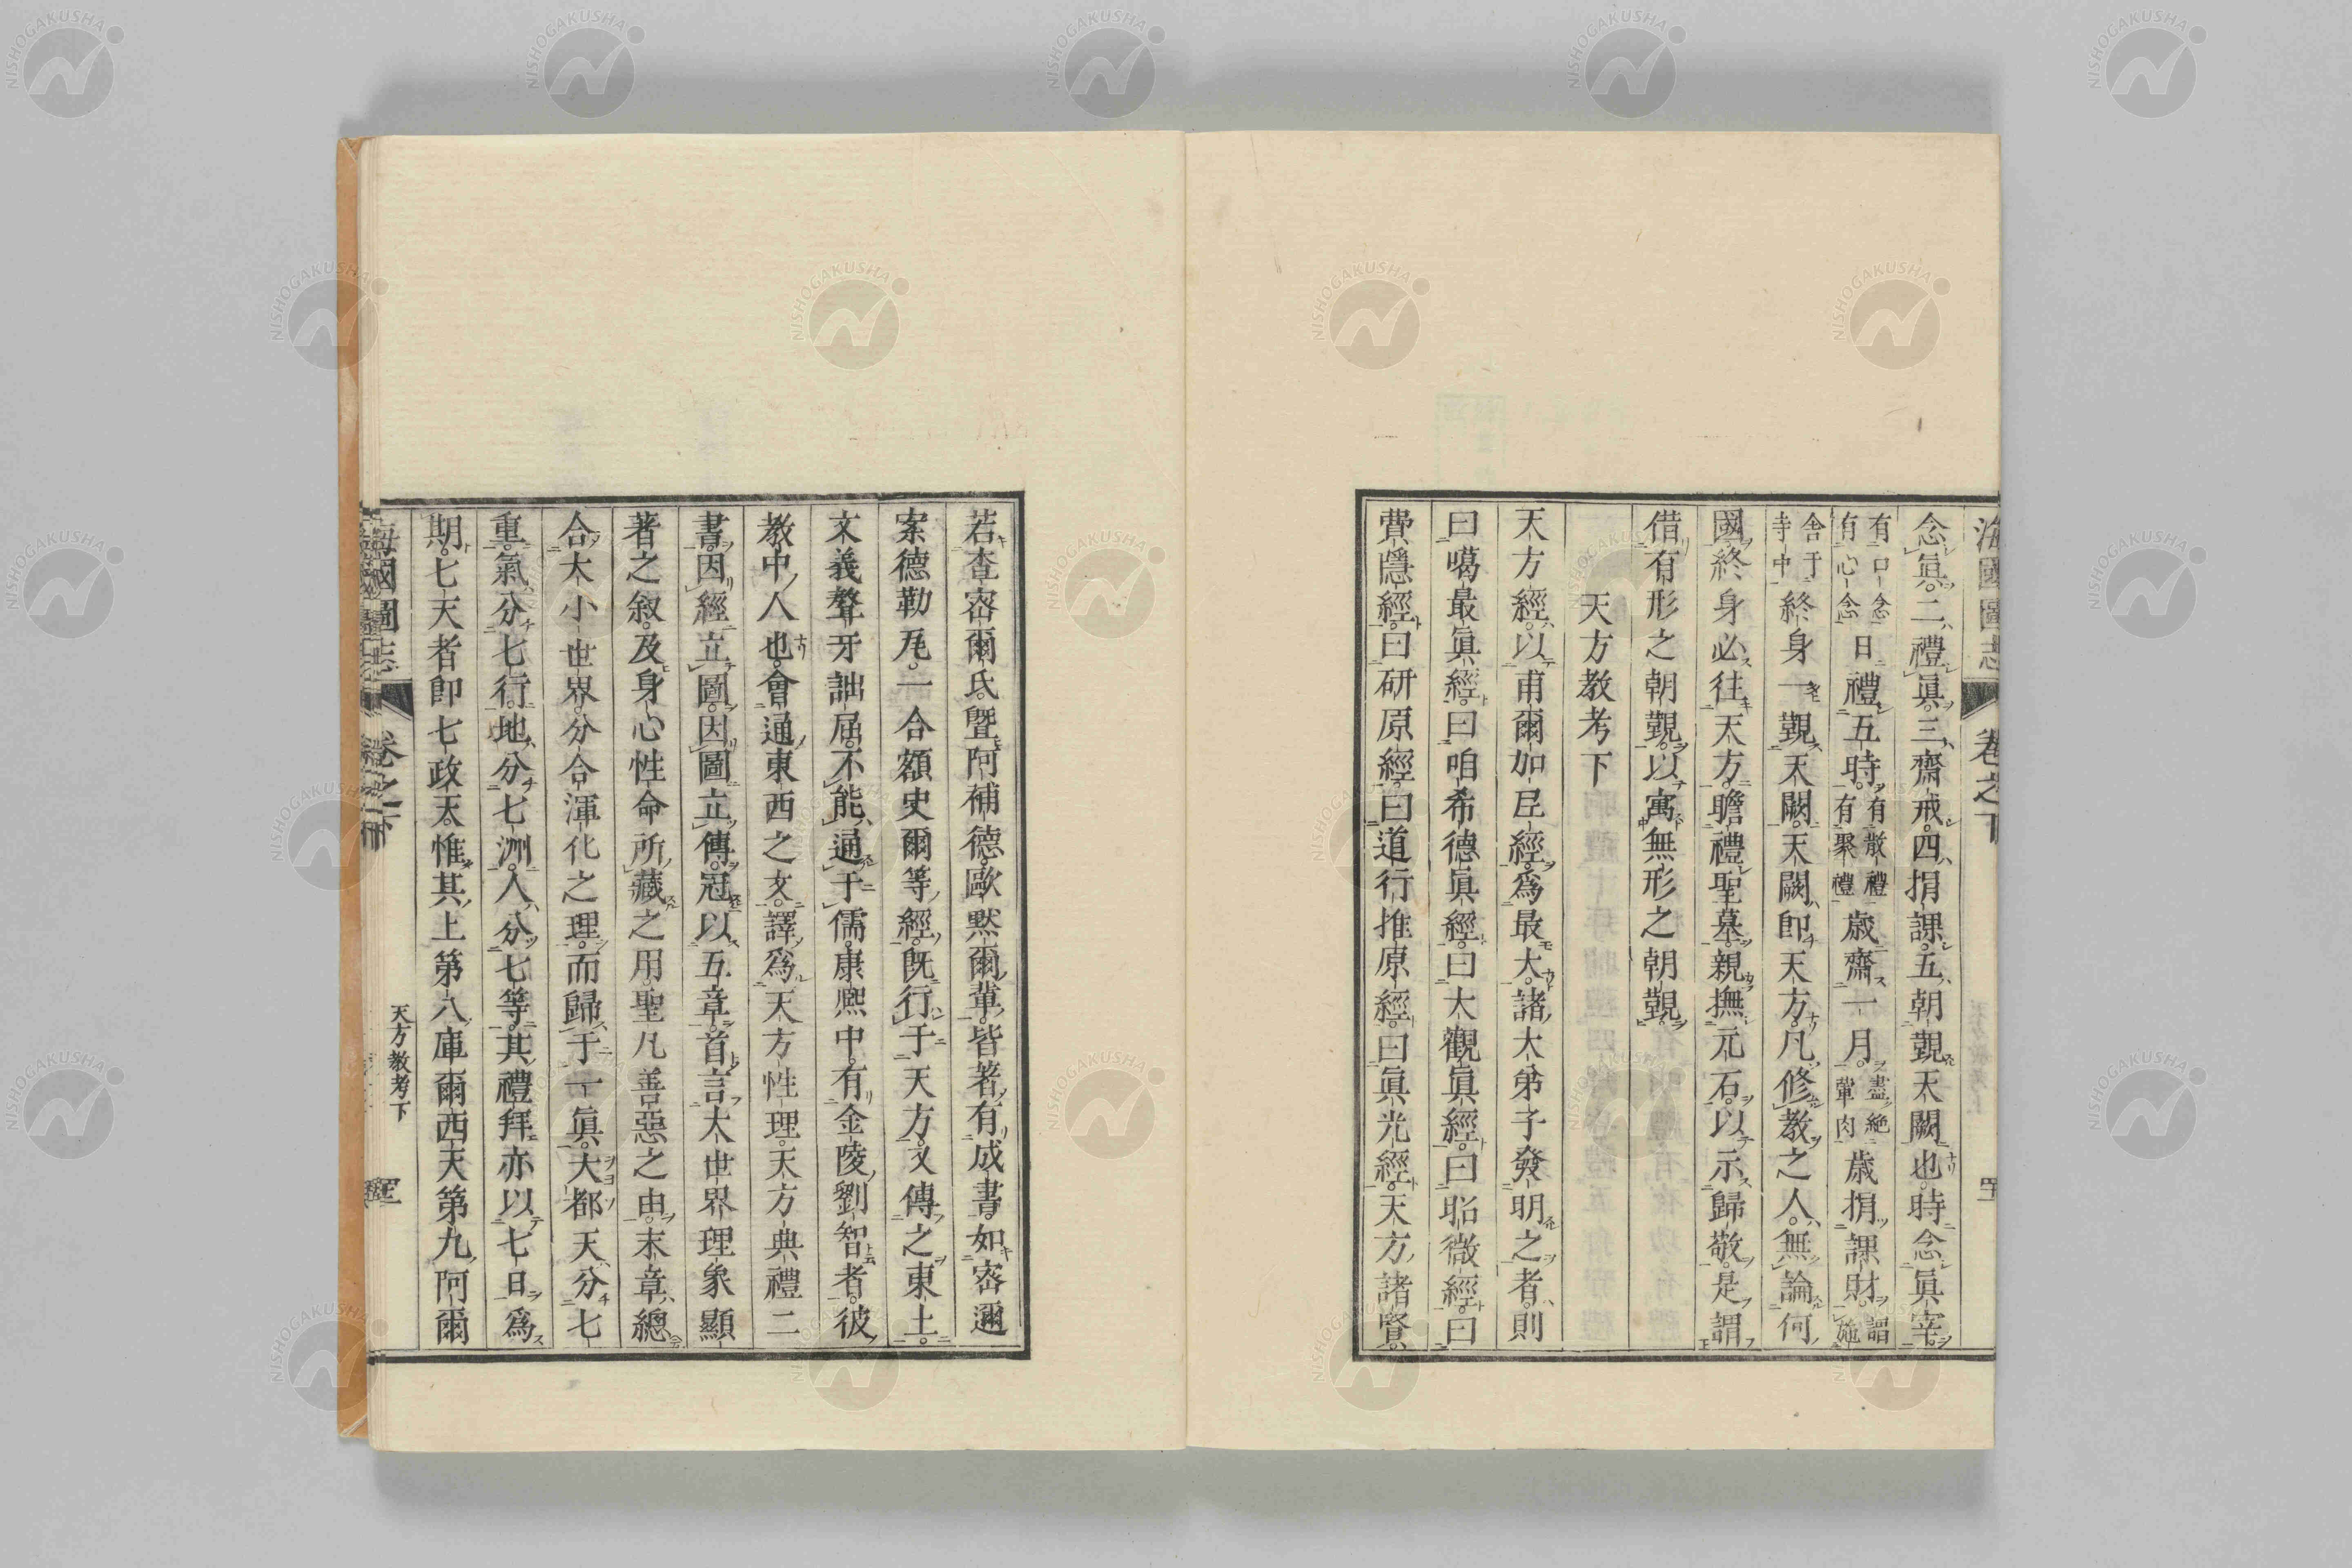 海國圖志 卷之下
念眞二禮眞三齋戒四捐課五朝覲天闕也時念眞宰
有口念有心念日禮五時有散禮有聚禮歲齋一月盡絶葷肉歲捐課財謂施
舍于寺中終身一覲天闕天闕即天方凡修教之人無論何
國終身必往天方瞻禮聖墓親撫元石以示歸敬是謂
借有形之朝覲以寓無形之朝覲
天方教考下
天方經以甫爾加尼經爲最大諸大弟子發明之者則
曰噶最眞經曰咱希德眞經曰大觀眞經曰昭微經曰
費隱經曰研原經曰道行推原經曰眞光經天方諸賢
若查密爾氏曁阿補德歐默爾輩皆著有成書如密邇
索德勒尾一合額史爾等經旣行于天方又傳之東土
文義聱牙詘屈不能通于儒康熙中有金陵劉智者彼
教中人也會通東西之文譯爲天方性理天方典禮二
書因經立圖因圖立傳冠以五章首言大世界理象顯
著之叙及身心性命所藏之用聖凡善惡之由末章總
合大小世界分合渾化之理而歸于一眞大都天分七
重氣分七行地分七洲人分七等其禮拜亦以七日爲
期七天者即七政天惟其上第八庫爾西天第九阿爾
海國圖志 卷之下 天方教考下
NISHOGAKUSHA